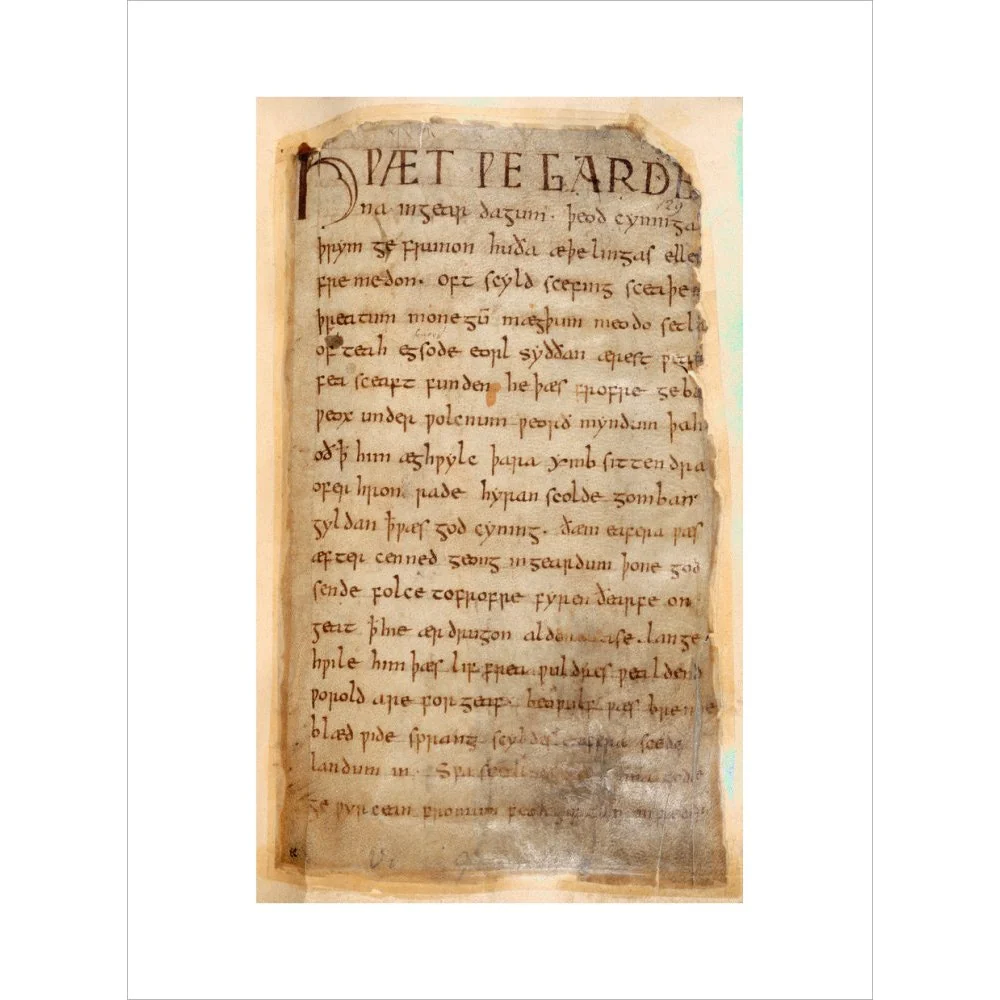 HǷÆT ǷE GARDE
na ingear dagum. þeod cyninga
þrym ge frunon huða æþelingas elle
fremedon. oft scyld scefing sceaþe
þreatum monegū mægþum meodo setla
of teah egsode eorl syððan ærest ƿear
fea sceaft funden he þæs frofre geba
ƿeox under ƿolcnum ƿeorð myndum þah
oð ꝥ him æghƿylc þara ymb sittendra
ofer hron rade hyran scolde gomban
gyldan ꝥ ƿæs god cyning. ðæm eafera ƿæs
æfter cenned geong ingeardum þone god
sende folce tofrofre fyren ðearfe on
geat ꝥ hie ær drugon aldor ase. lange
hƿile him þæs lif frea ƿuldres ƿealdend
ƿorold are forgeaf. beoƿulf ƿæs breme
blæd ƿide sprang scyldes eafera scede
landum in. Sƿa
ge ƿyrcean fromum feoh